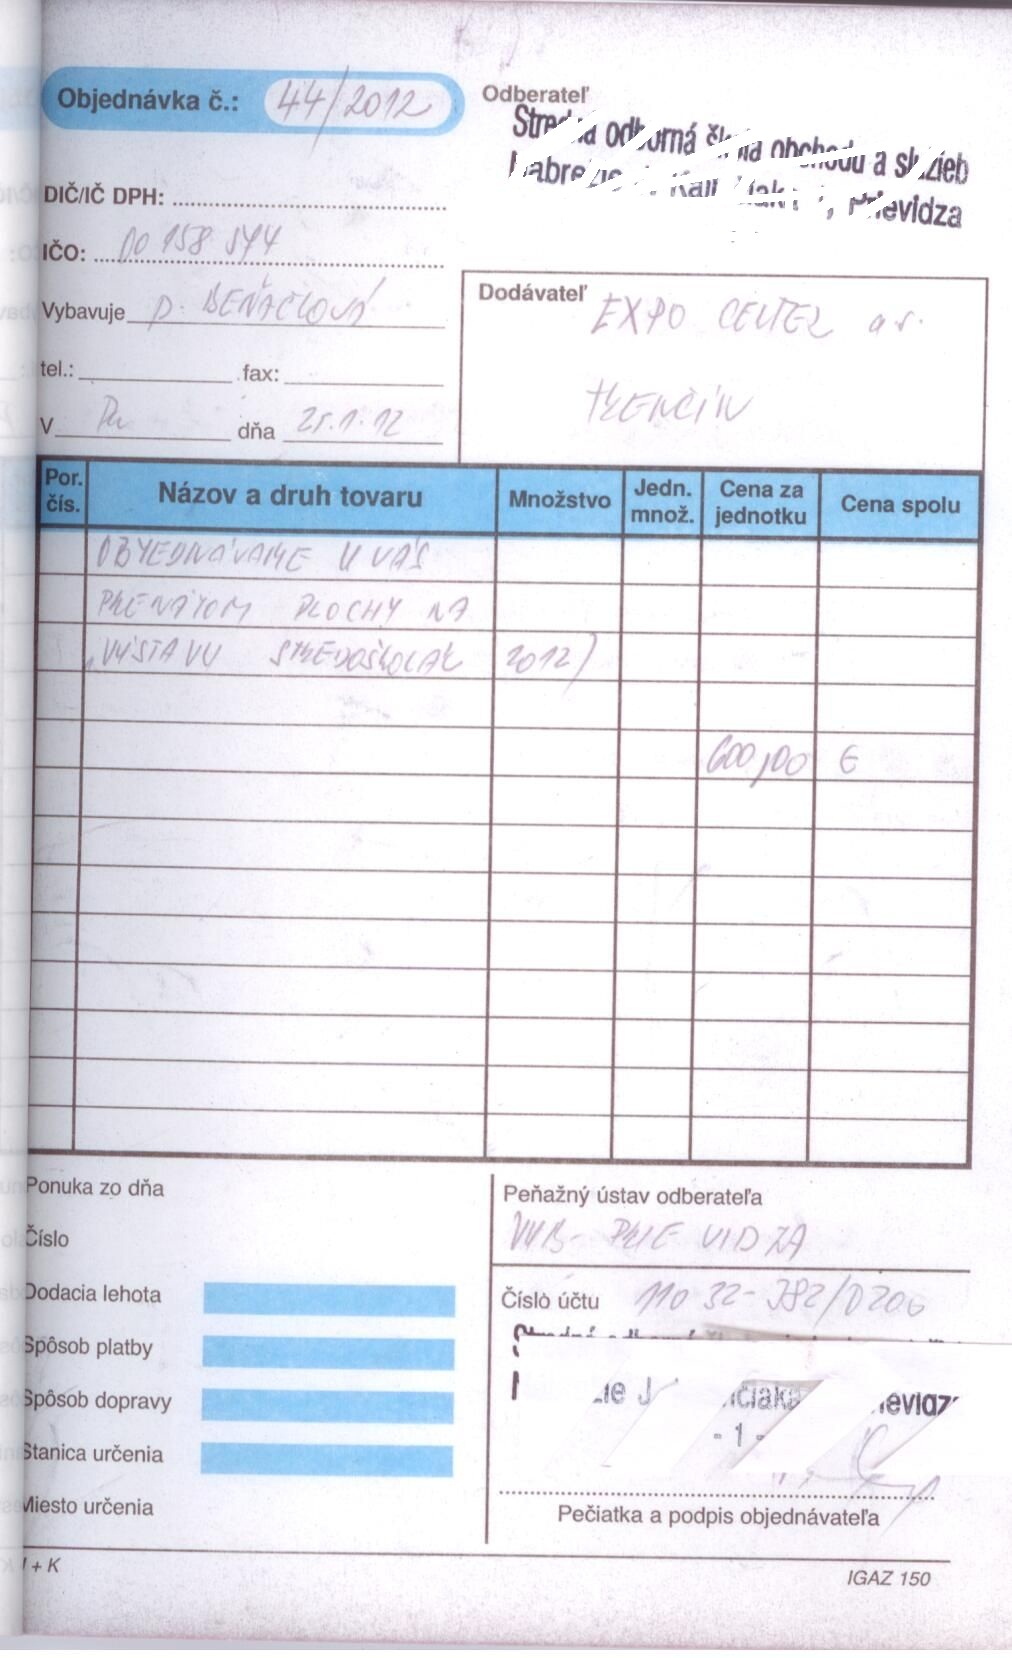 Objednávka č.: 44/2012
Odberateľ
Stredná odborná škola obchodu a služieb
Nábrežie J. Kalinčiaka 1, Prievidza
DIČ/IČ DPH:
IČO: 00 158 544
Vybavuje D. BEŇAČKOVÁ
tel.: fax:
V Pu dňa 25.1.12
Dodávateľ
EXPO CENTER a.s.
TRENČÍN
Por. čís. Názov a druh tovaru Množstvo Jedn. množ. Cena za jednotku Cena spolu
OBJEDNÁVAME U VÁS
PRENÁJOM PLOCHY NA
„VÝSTAVU STREDOŠKOLÁK 2012)
600,00 €
Ponuka zo dňa
Číslo
Dodacia lehota
Spôsob platby
Spôsob dopravy
Stanica určenia
Miesto určenia
Peňažný ústav odberateľa
VÚB- PRIEVIDZA
Číslo účtu 110 32-382/0200
- 1 -
Pečiatka a podpis objednávateľa
+ K
IGAZ 150